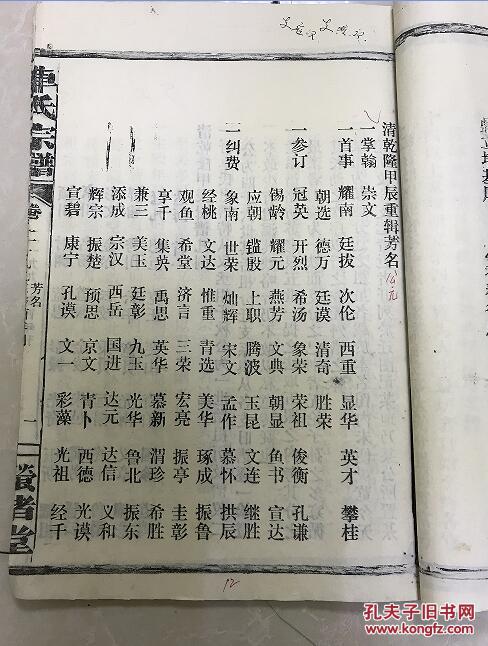 清乾隆甲辰重辑芳名
公元
一掌翰 崇文
一首事 耀南 廷拔 次伦 西重 显华 英才 攀桂
朝选 德万 廷谟 清奇 胜荣
一参订 冠英 开烈 希汤 象荣 荣祖 俊衡 孔谦
锡龄 耀元 燕芳 文典 朝显 鱼书 宣达
应朝 镒殷 上职 腾波 玉昆 文连 继胜
一纠费 象南 世荣 灿辉 宋文 孟作 慕怀 拱辰
经桃 文达 惟重 青选 美华 琢成 振鲁
观鱼 希堂 济言 三荣 宏亮 振亭 圭彰
享千 集英 禹思 英华 慕新 渭珍 希胜
兼三 美玉 廷彰 九玉 光华 鲁北 振东
添成 宗汉 西岳 国进 达元 达信 义和
辉宗 振楚 预思 京文 青卜 西德 光谟
宣碧 康宁 孔谟 文一 彩藻 光祖 经千
氏宗谱
卷
芳名
一
堂
12
孔夫子旧书网
KONGFZ.COM